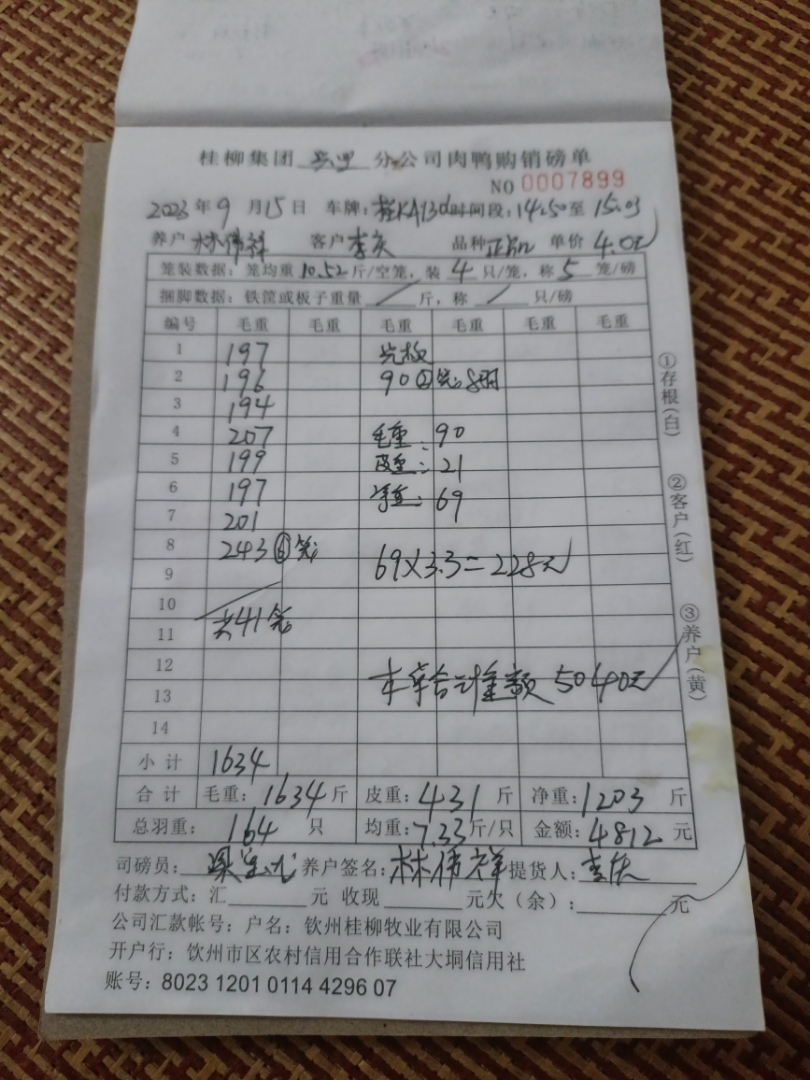 桂柳集团 分公司肉鸭购销磅单
NO 0007899
2023 年 9 月 15 日 车牌: 时间段: 14:50 至 15:03
养户 林伟祥 客户 李庆 品种 单价 4.0元
笼装数据: 笼均重 10.52 斤/空笼, 装 4 只/笼, 称 5 笼/磅
捆脚数据: 铁筐或板子重量 / 斤, 称 / 只/磅
编号 毛重 毛重 毛重 毛重 毛重 毛重
1 197
2 196 90 ②笼
3 194
4 207 毛重: 90
5 199 皮重: 21
6 197 净重: 69
7 201
8 243 ⑥笼
9 69×3.3=228元
10
11 共41笼
12
13 本车合计金额 5040元
14
小计 1634
合计 毛重: 1634 斤 皮重: 431 斤 净重: 1203 斤
总羽重: 164 只 均重: 7.33 斤/只 金额: 4812 元
司磅员: 养户签名: 林伟祥 提货人: 李庆
付款方式: 汇 元 收现 元欠(余): 元
公司汇款帐号: 户名: 钦州桂柳牧业有限公司
开户行: 钦州市区农村信用合作联社大垌信用社
账号: 8023 1201 0114 4296 07
①存根(白)
②客户(红)
③养户(黄)